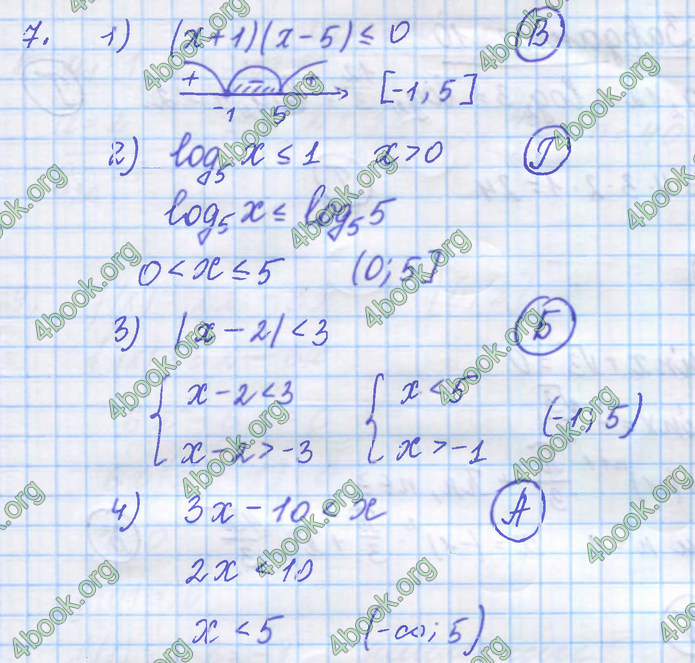 7. 1) (x+1)(x-5) ≤ 0 В
+ - +
-1 5 [-1; 5]
2) log₅ x ≤ 1 x > 0 Г
log₅ x ≤ log₅ 5
0 < x ≤ 5 (0; 5]
3) |x - 2| < 3 Б
{ x - 2 < 3 { x < 5
(-1; 5)
x - 2 > -3 x > -1
4) 3x - 10 < x А
2x < 10
x < 5 (-∞; 5)
4book.org